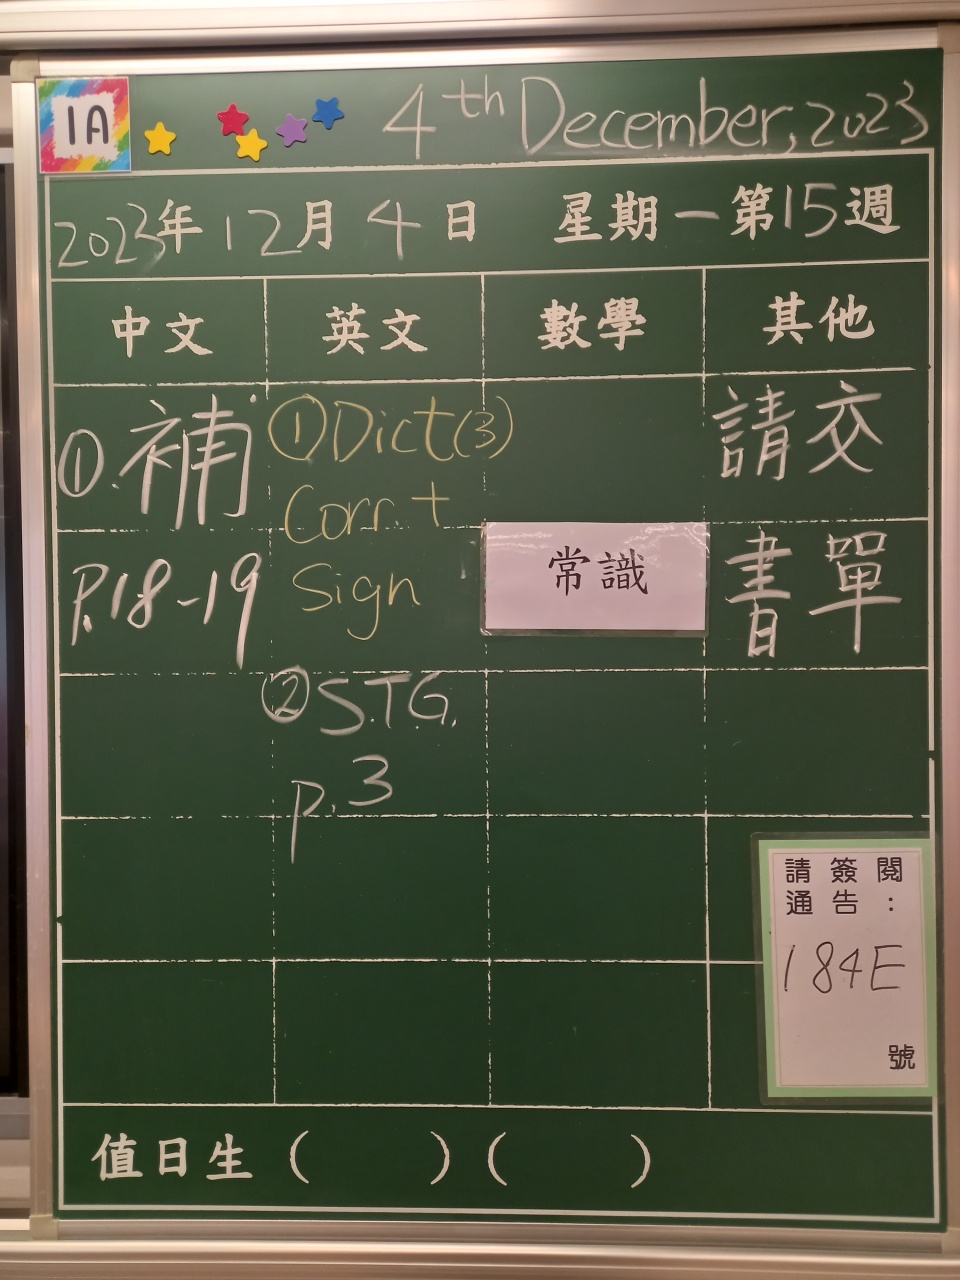 1A
4th December, 2023
2023年 12月 4日 星期一 第15週
中文 英文 數學 其他
①.補
P.18-19
①Dict(3)
Corr.+
Sign
②S.T.G.
p.3
常識
請交
書單
請簽閱
通告:
184E
號
值日生 ( ) ( )